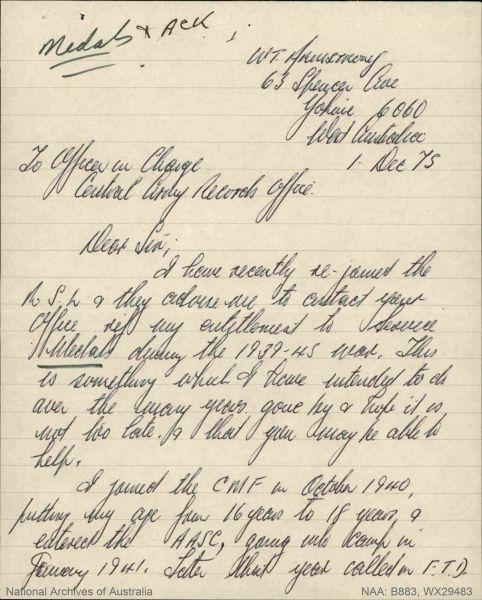 Medals & Ack
W.T. Armstrong
63 Spencer Ave
Yokine 6060
West Australia
1 Dec 75
To Officer in Charge
Central Army Records Office.
Dear Sir,
I have recently re-joined the
R.S.L & they advise me to contact your
Office my entitlement to Service
Medals during the 1939-45 war. This
is something which I have intended to do
over the many years gone by & hope it is
not too late, & that you may be able to
help.
I joined the CMF in October 1940,
putting my age from 16 years to 18 years, &
entered the AASC, going into camp in
January 1941. Later that year called in F.T.D.
National Archives of Australia
NAA: B883, WX29483